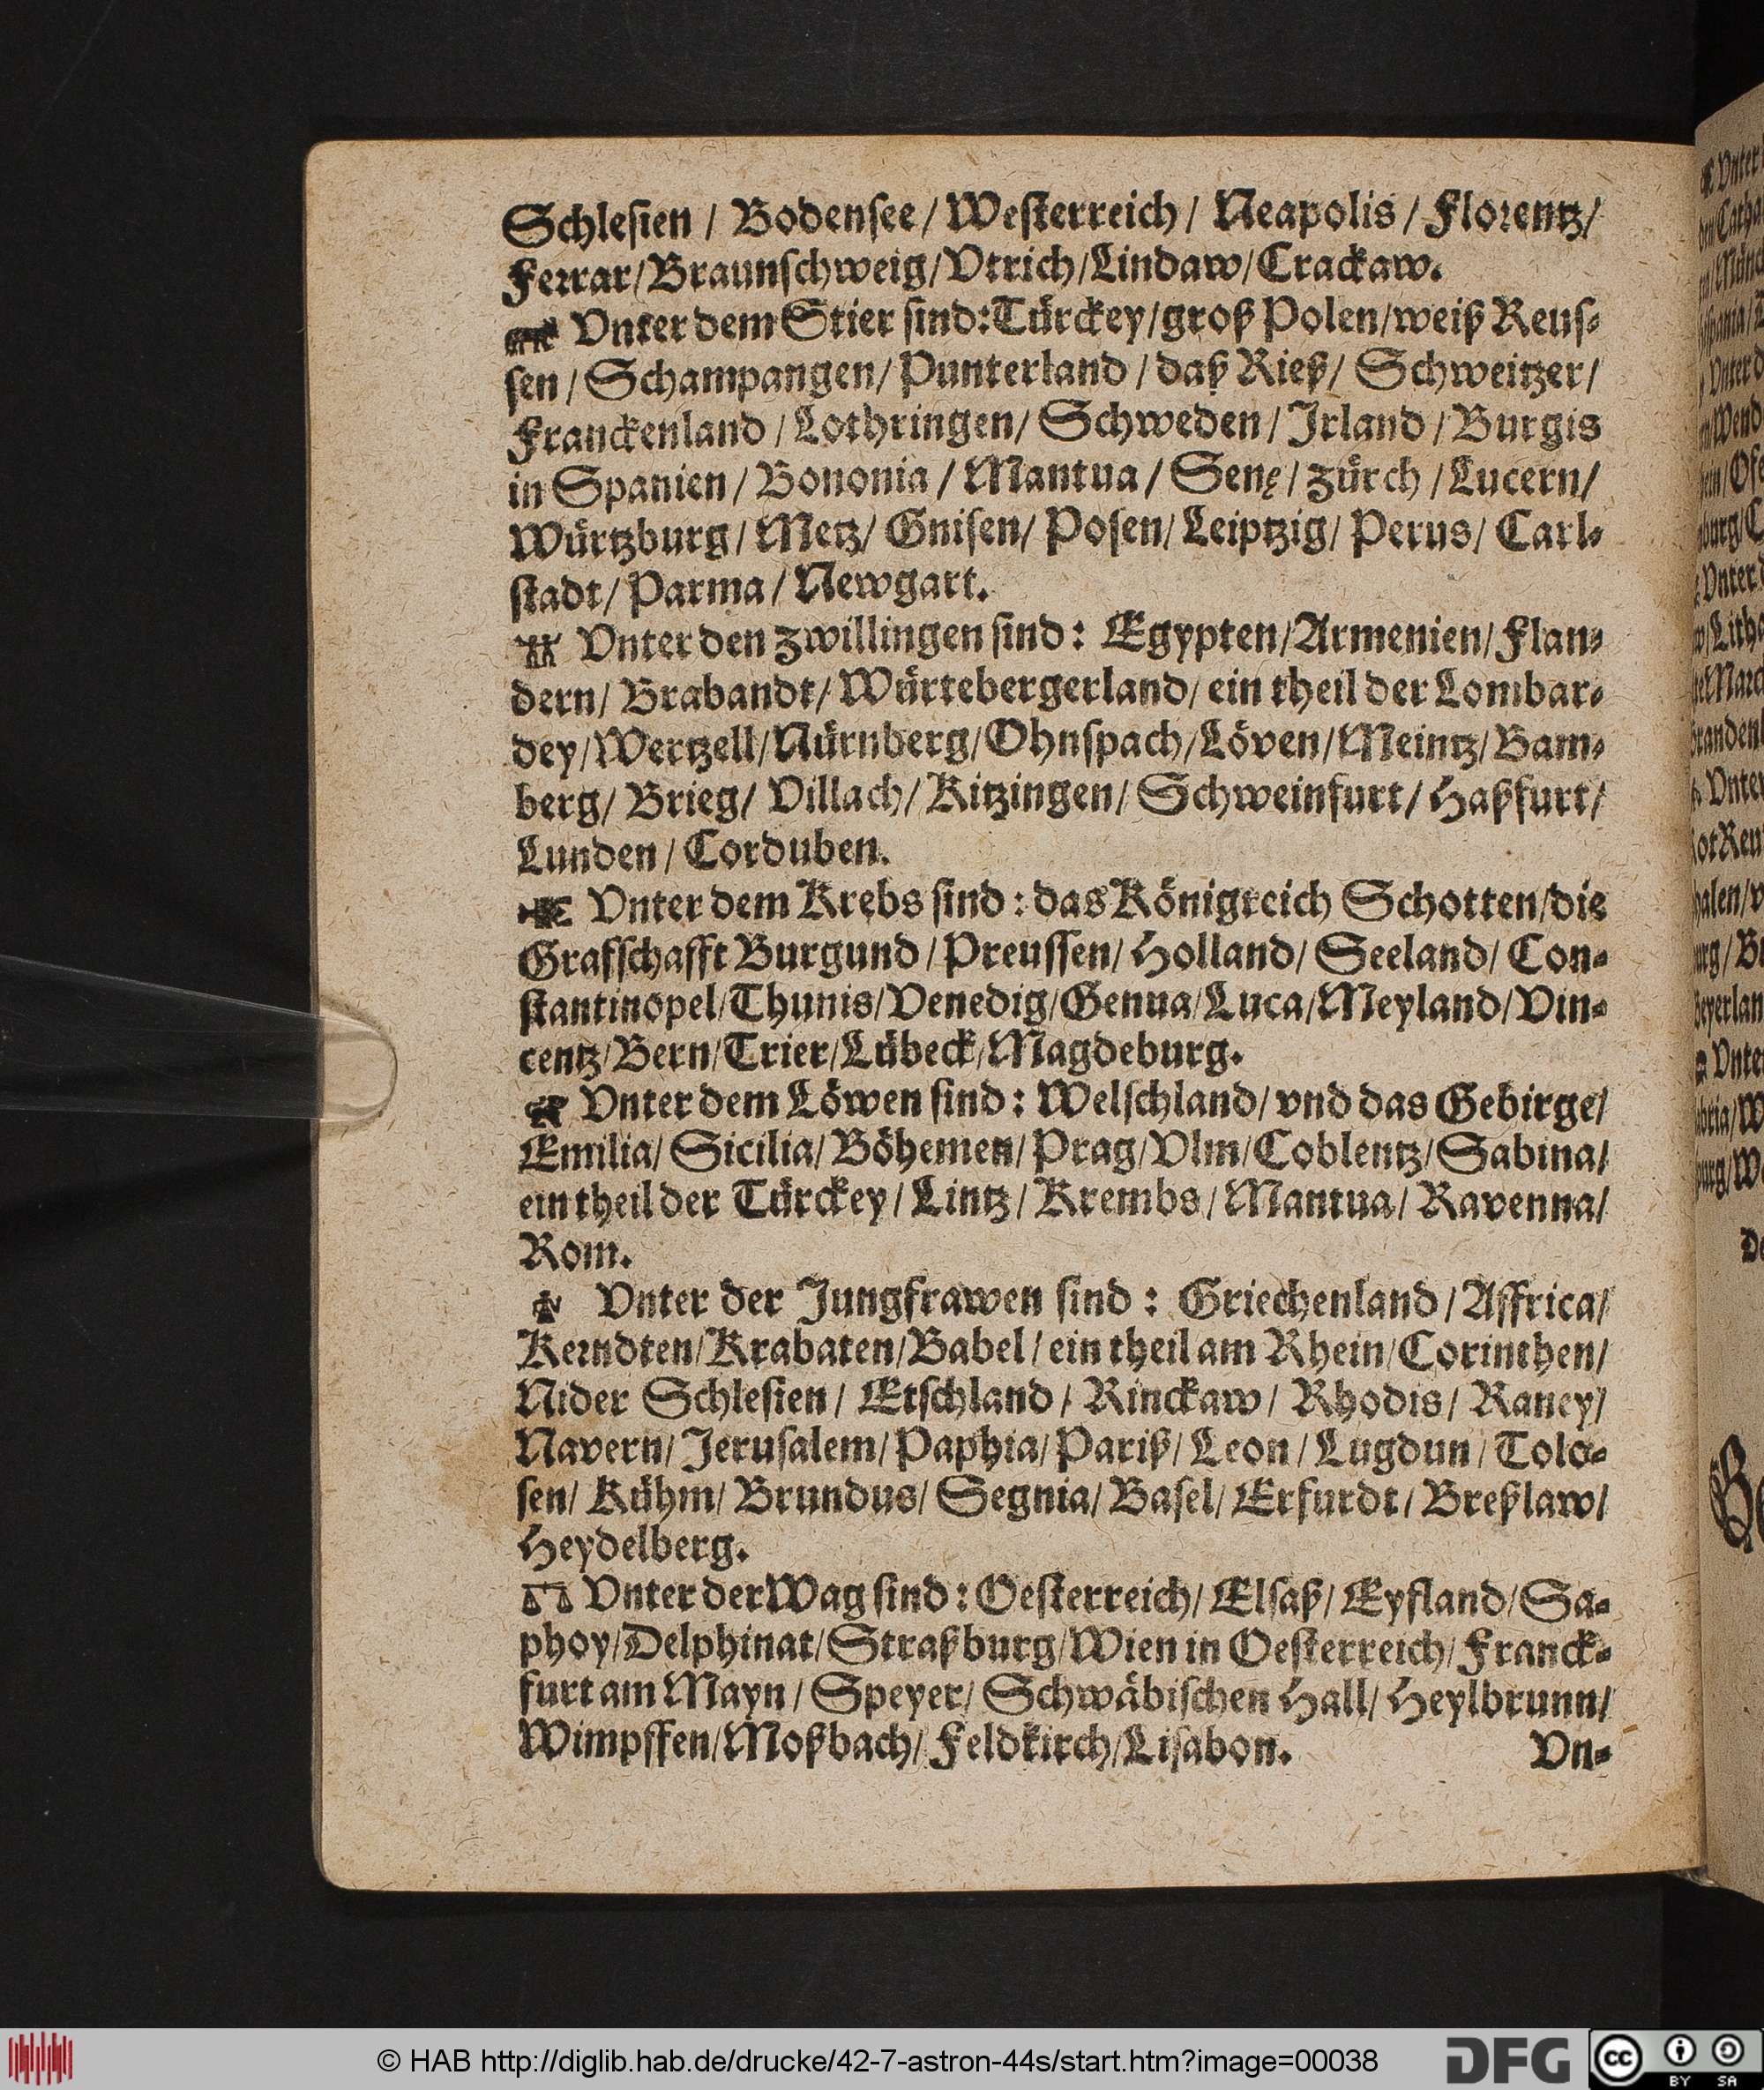 Schlesien / Bodensee / Westerreich / Neapolis / Florentz /
Ferrar / Braunschweig / Vtrich / Lindaw / Crackaw.
Vnter dem Stier sind: Türckey / groß Polen / weiß Reus-
sen / Schampangen / Punterland / daß Rieß / Schweitzer /
Franckenland / Lothringen / Schweden / Irland / Burgis
in Spanien / Bononia / Mantua / Senę / Zürch / Lucern /
Würtzburg / Metz / Gnisen / Posen / Leiptzig / Perus / Carl-
stadt / Parma / Newgart.
Vnter den Zwillingen sind: Egypten / Armenien / Flan-
dern / Brabandt / Würtebergerland / ein theil der Lombar-
dey / Wertzell / Nürnberg / Ohnspach / Löven / Meintz / Bam-
berg / Brieg / Villach / Kitzingen / Schweinfurt / Haßfurt /
Lunden / Corduben.
Vnter dem Krebs sind: das Königreich Schotten / die
Grafschafft Burgund / Preussen / Holland / Seeland / Con-
stantinopel / Thunis / Venedig / Genua / Luca / Meyland / Vin-
centz / Bern / Trier / Lübeck / Magdeburg.
Vnter dem Löwen sind: Welschland / vnd das Gebirge /
Emilia / Sicilia / Böhemen / Prag / Vlm / Coblentz / Sabina /
ein theil der Türckey / Lintz / Krembs / Mantua / Ravenna /
Rom.
Vnter der Jungfrawen sind: Griechenland / Affrica /
Kerndten / Krabaten / Babel / ein theil am Rhein / Corinthen /
Nider Schlesien / Etschland / Rinckaw / Rhodis / Raney /
Navern / Jerusalem / Paphia / Pariß / Leon / Lugdun / Tolo-
sen / Kühm / Brundus / Segnia / Basel / Erfurdt / Breßlaw /
Heydelberg.
♎ Vnter der Wag sind: Oesterreich / Elsaß / Eyfland / Sa-
phoy / Delphinat / Straßburg / Wien in Oesterreich / Franck-
furt am Mayn / Speyer / Schwäbischen Hall / Heylbrunn /
Wimpffen / Moßbach / Feldkirch / Lisabon.
Vn-
© HAB http://diglib.hab.de/drucke/42-7-astron-44s/start.htm?image=00038
DFG
cc BY SA